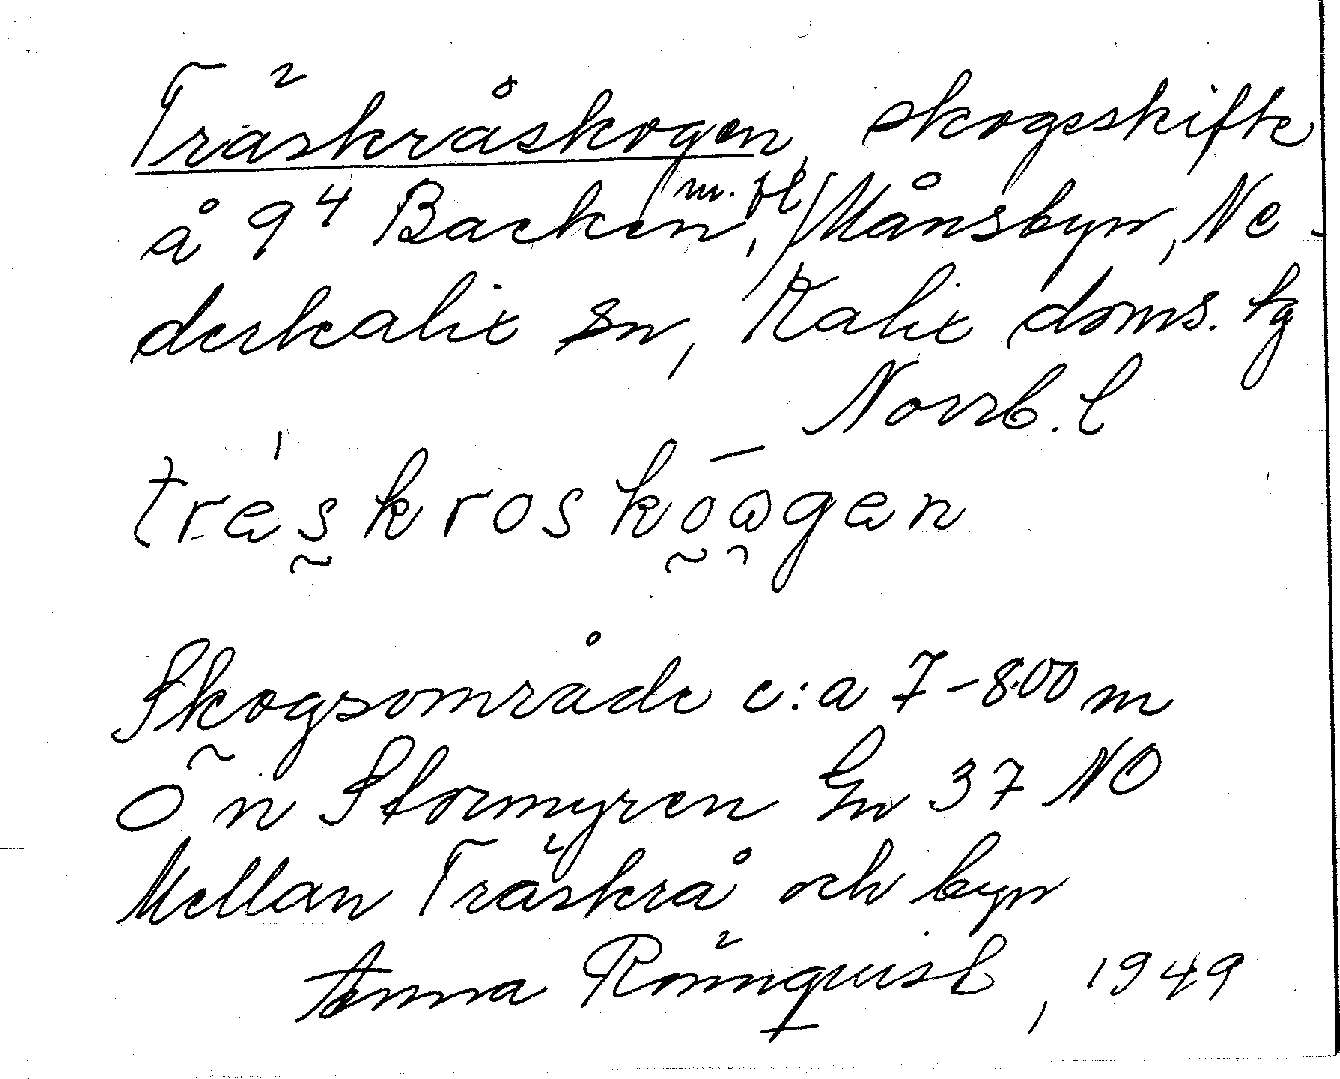 Träskråskogen, skogsskifte
å 9⁴ Backen, m. fl / Månsbyn, Ne-
derkalix sn, Kalix doms. tg
Norrb. l
träskroskωgen
Skogsområde c:a 7-800 m
Ö n Stormyren Gn 37 NO
Mellan Träskrå och byn
Anna Rönnquist, 1949